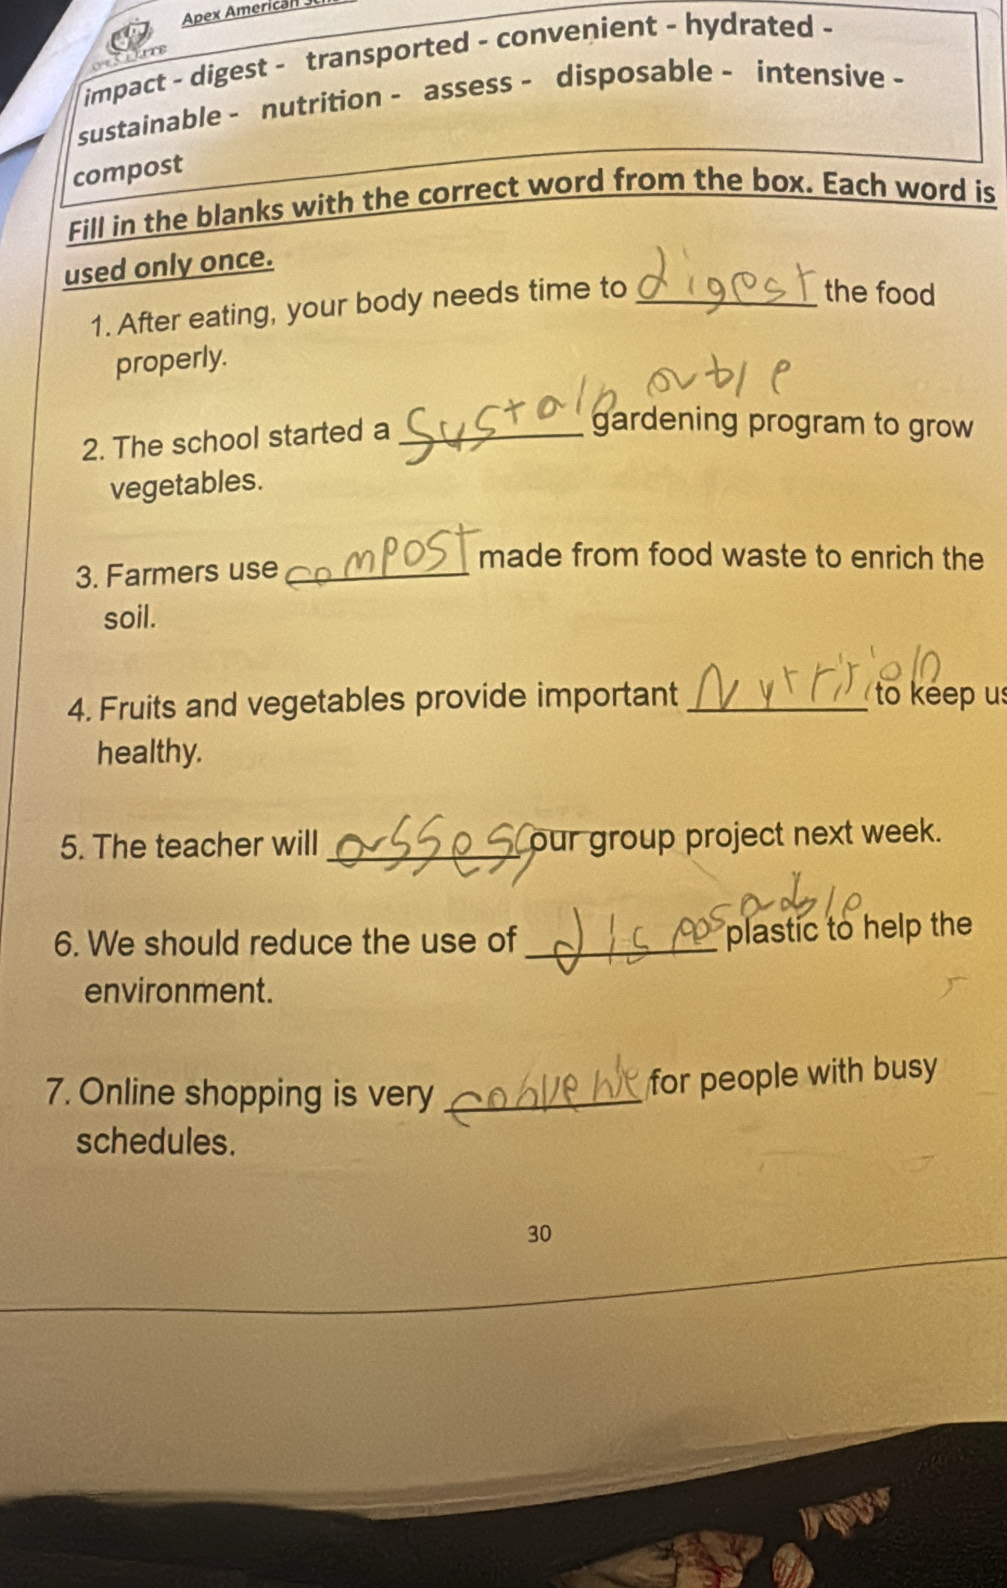 Apex American
impact - digest - transported - convenient - hydrated -
sustainable - nutrition - assess - disposable - intensive -
compost
Fill in the blanks with the correct word from the box. Each word is
used only once.
1. After eating, your body needs time to digest the food
properly.
2. The school started a gardening program to grow
vegetables.
3. Farmers use compost made from food waste to enrich the
soil.
4. Fruits and vegetables provide important to keep us
healthy.
5. The teacher will assess our group project next week.
6. We should reduce the use of disposable plastic to help the
environment.
7. Online shopping is very for people with busy
schedules.
30